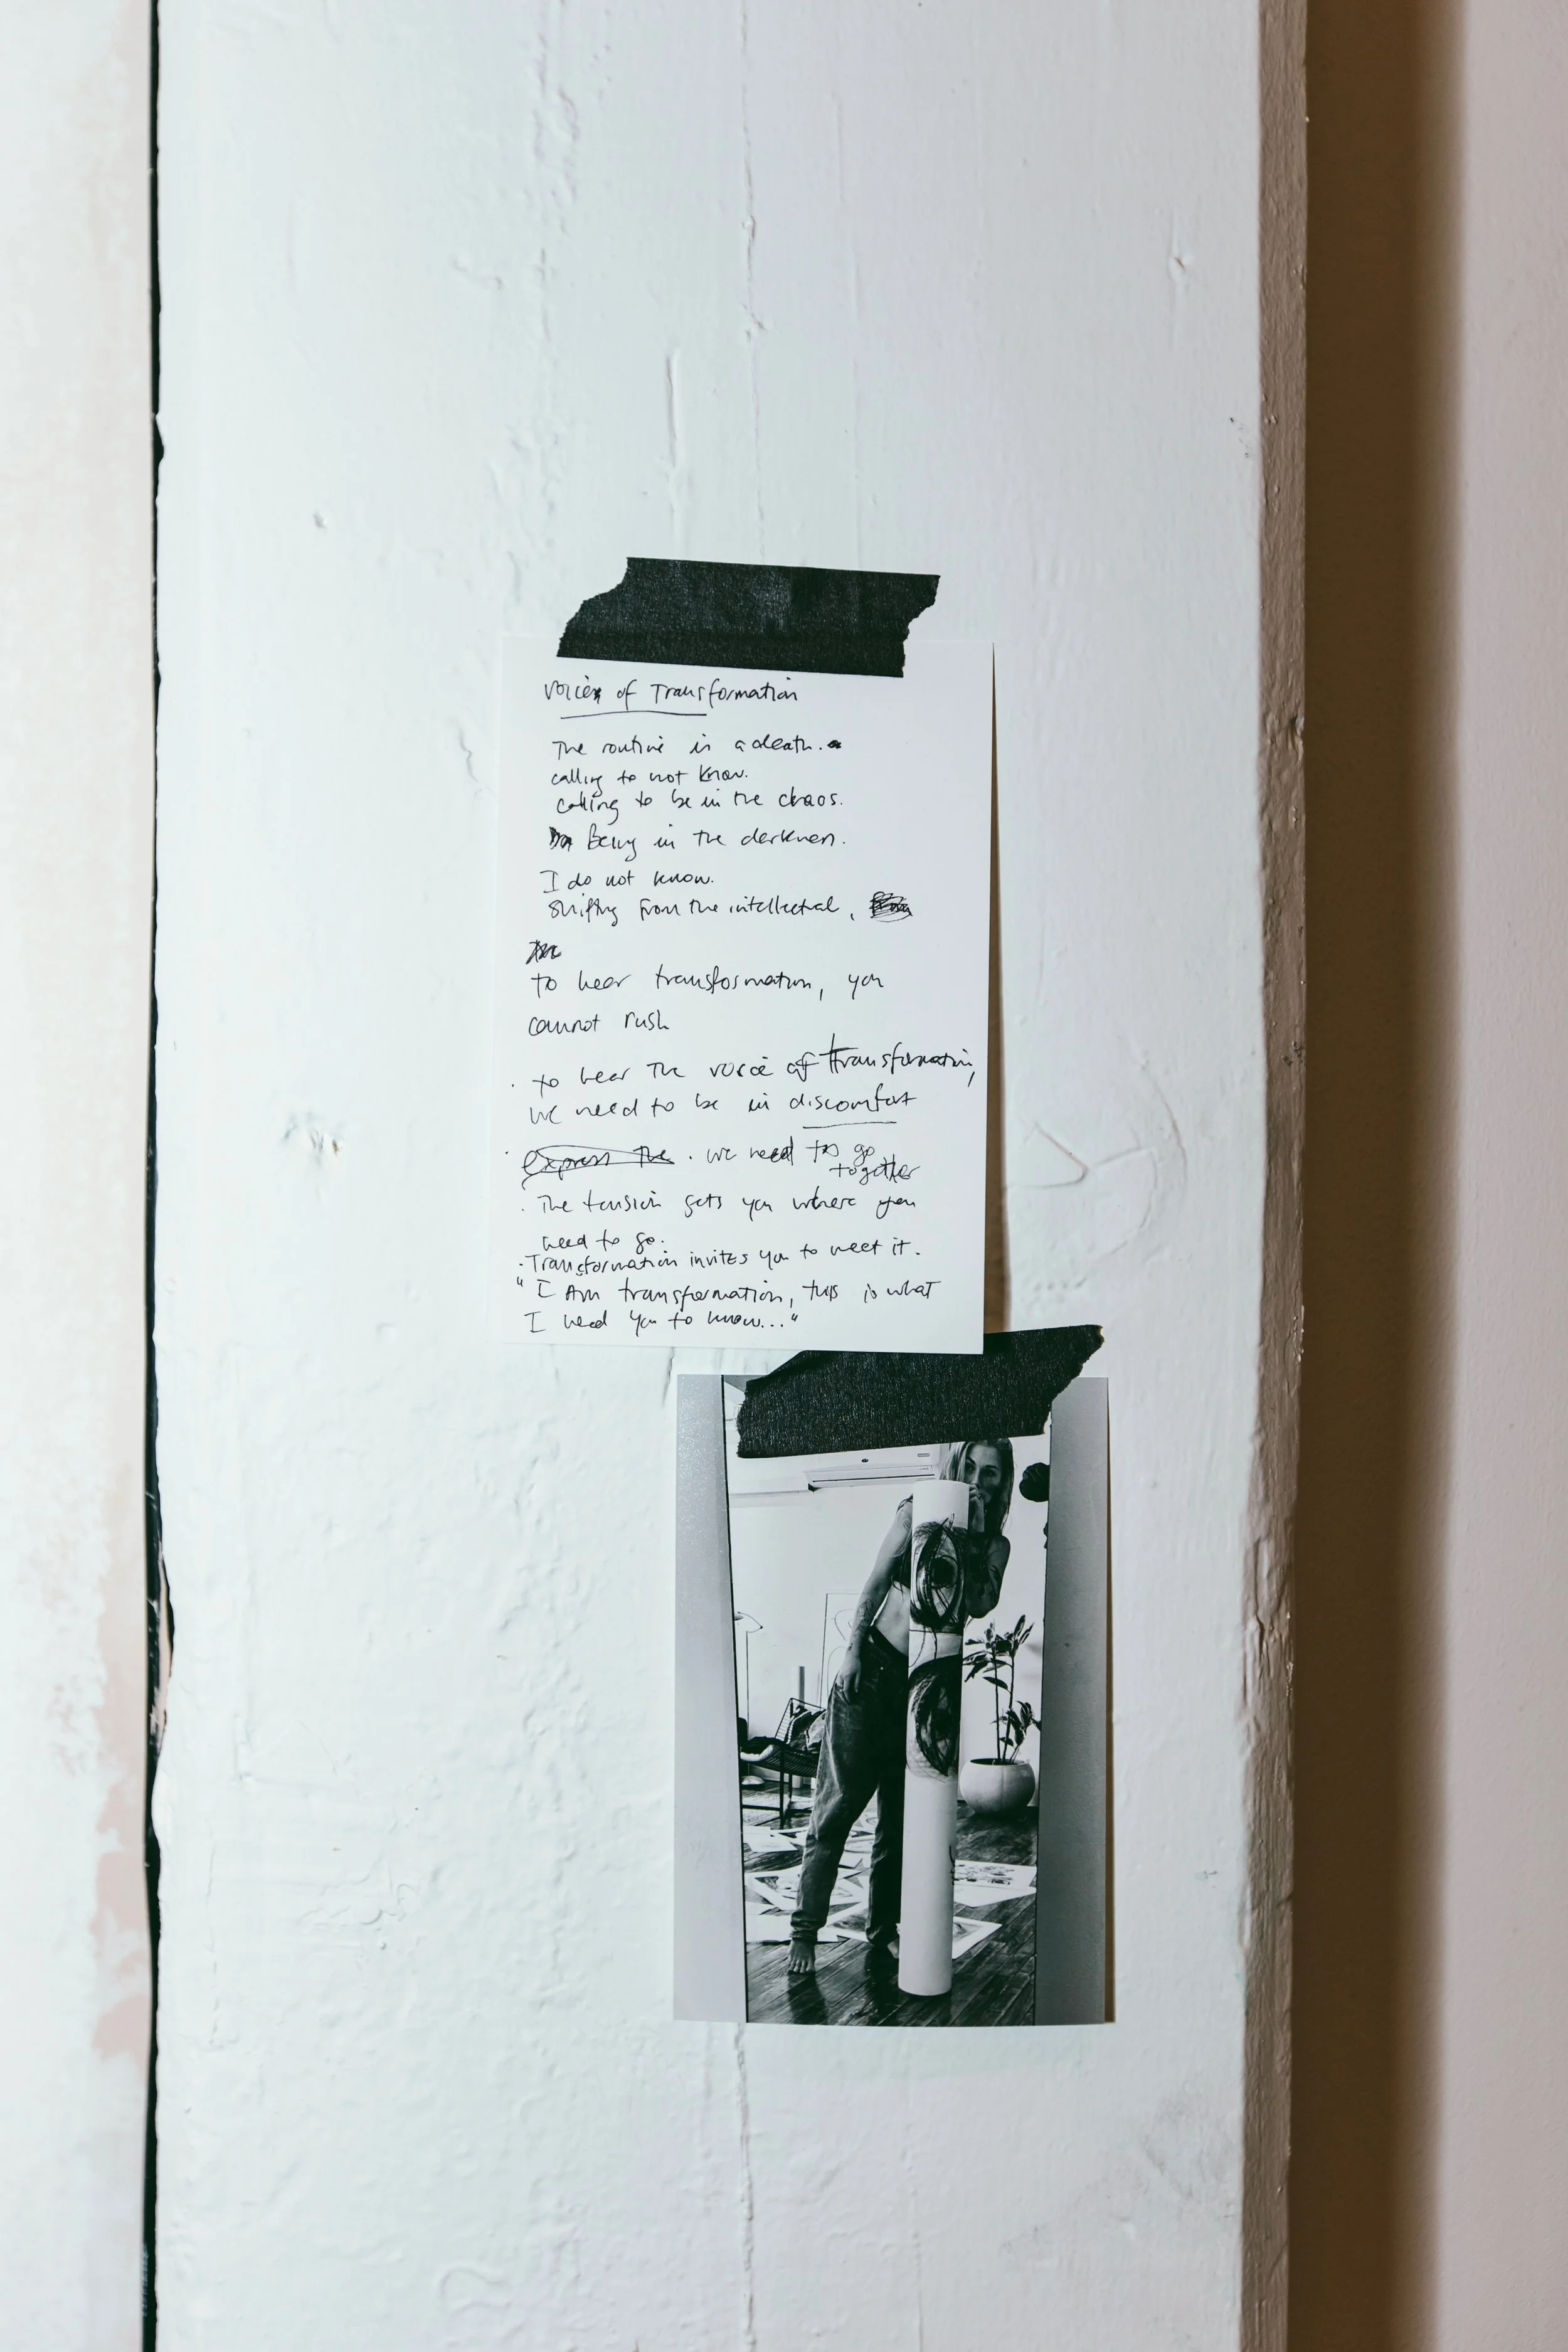 Voice of Transformation
The routine is a death.
calling to not know.
calling to be in the chaos.
Being in the darkness.
I do not know.
Shifting from the intellectual,
to hear transformation, you
cannot rush
. to hear the voice of transformation,
we need to be in discomfort
. express the . we need to go
together
. The tension gets you where you
need to go.
. Transformation invites you to meet it.
" I Am transformation, this is what
I need you to know... "